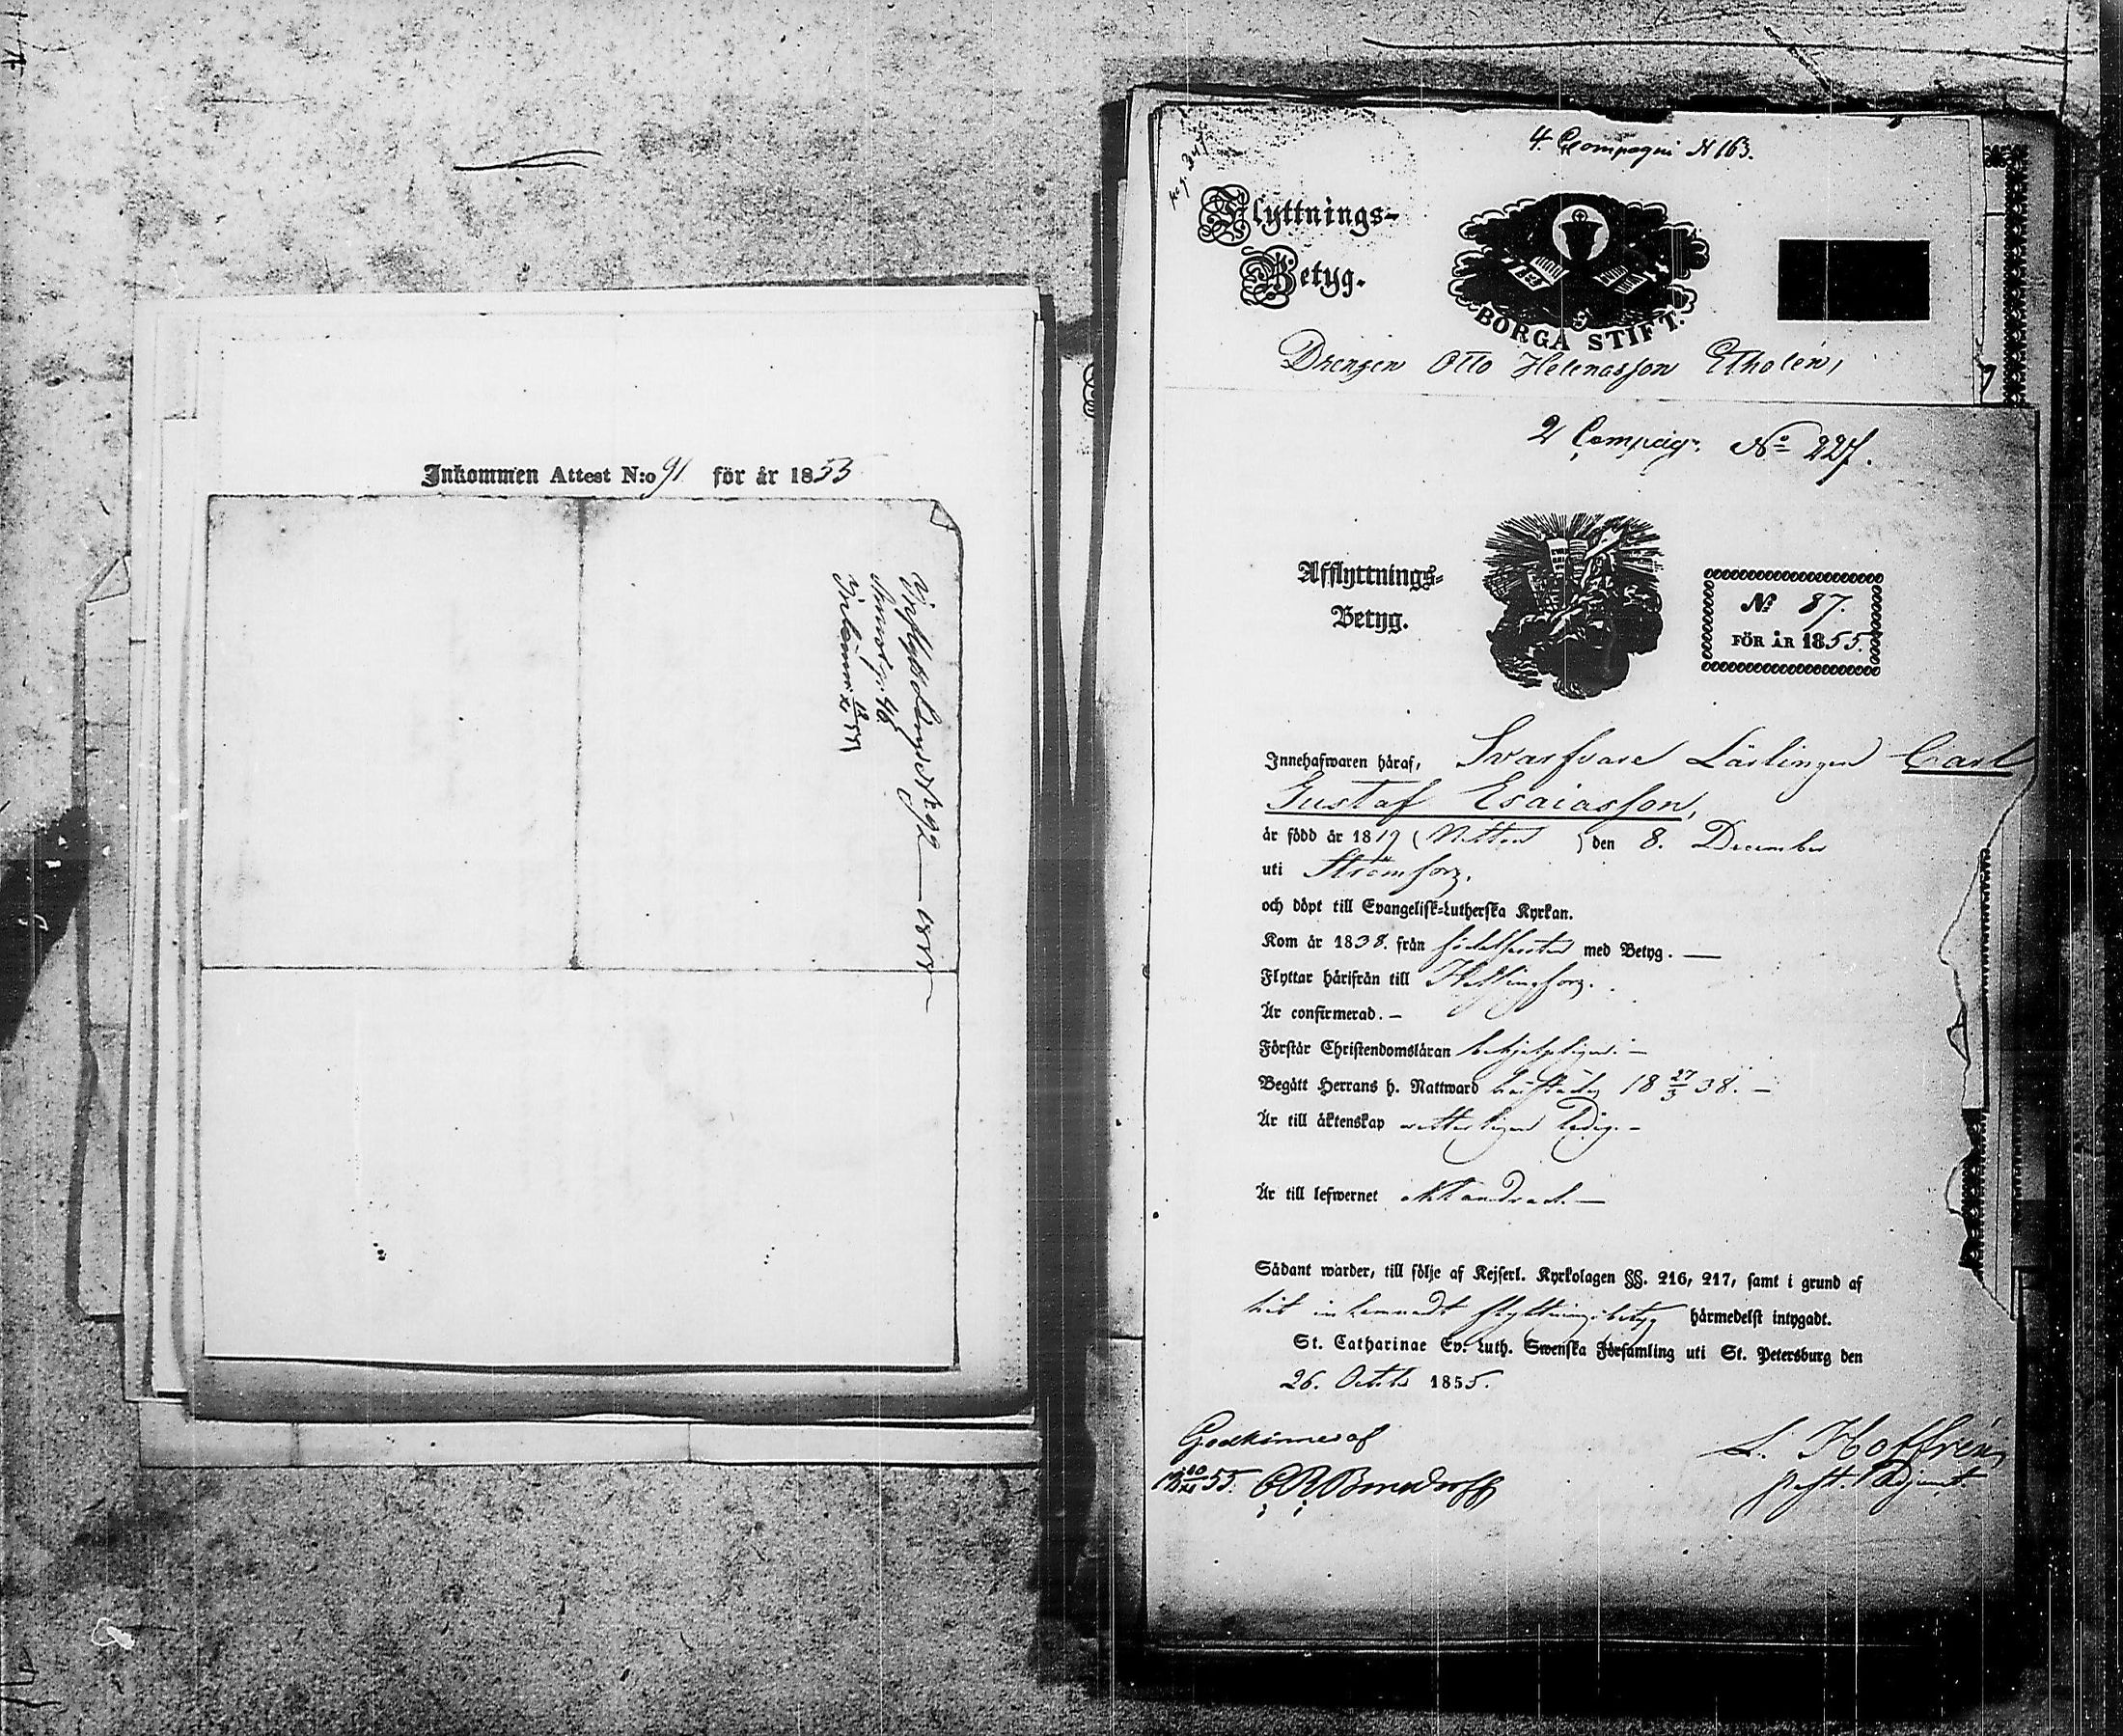 Inkommen Attest N:o 91 för år 1855
4 Compagni N 163.
Flyttnings-
Betyg.
BORGÅ STIFT.
Drengen Otto Helenasson Etholén,
2 Compagn: No 227.
Afflyttnings-
Betyg.
No 87.
FÖR ÅR 1855.
Innehafwaren häraf, Svarfvare Lärlingen Carl
Gustaf Esaiasson,
är född år 1819 (Nitton) den 8. December
uti Strömfors.
och döpt till Evangelisk-Lutherska Kyrkan.
Kom år 1838. från födelseorten med Betyg. —
Flyttar härifrån till Helsingfors.
Är confirmerad. —
Förstår Christendomsläran behjelpligen. —
Begått Herrans h. Nattward härstädes 18 27/3 38. —
Är till äktenskap ledig. —
Är till lefwernet oklandrad. —
Sådant warder, till följe af Kejserl. Kyrkolagen §§. 216, 217, samt i grund af
hit inlemnadt flyttningsbetyg härmedelst intygadt.
St. Catharinae Ev. Luth. Swenska Församling uti St. Petersburg den
26. Octob 1855.
Godkännes af
L. Hoffrén
Past. Adjunct.